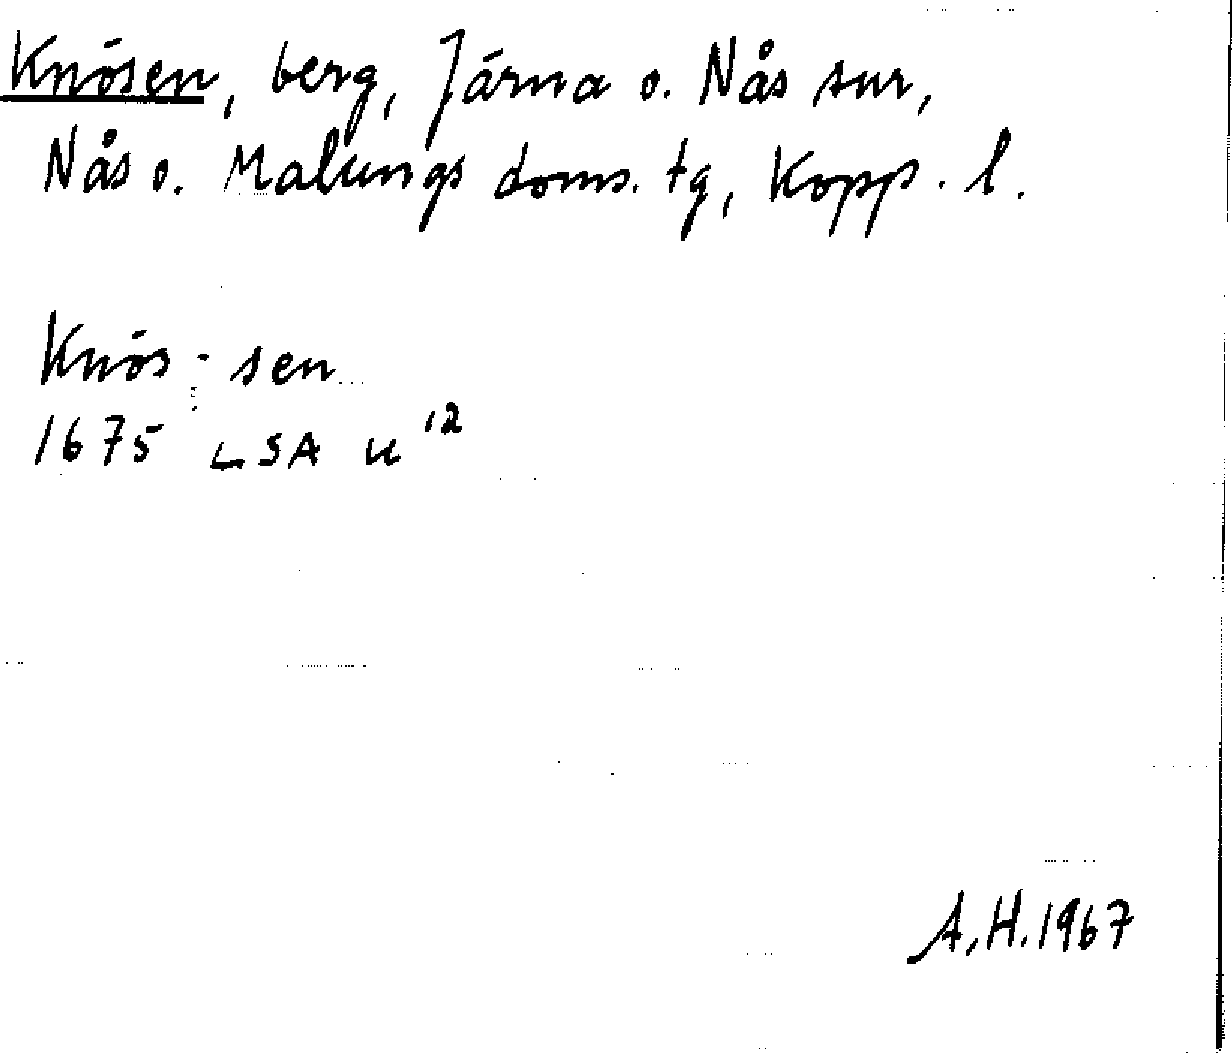 Knösen, berg, Järna o. Nås snr,
Nås o. Malungs doms. tg, Kopp. l.
Knös - sen
1675 LSA U 12
A.H. 1967